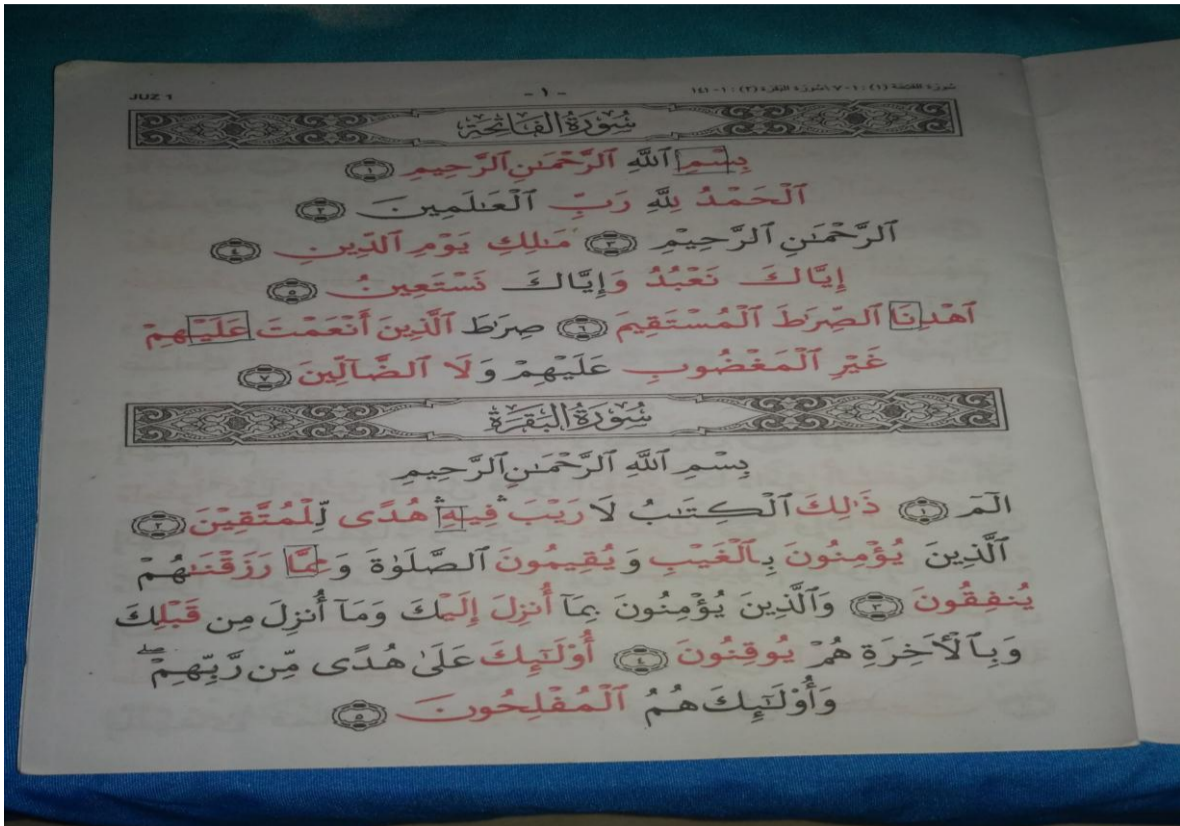 JUZ 1
- ١ -
سورة الفاتحة (١) : ١-٧ \ سورة البقرة (٢) : ١-١٤١
سُورَةُ الفَاتِحَةِ
بِسْمِ ٱللَّهِ ٱلرَّحْمَـٰنِ ٱلرَّحِيمِ ١
ٱلْحَمْدُ لِلَّهِ رَبِّ ٱلْعَـٰلَمِينَ ٢
ٱلرَّحْمَـٰنِ ٱلرَّحِيمِ ٣ مَـٰلِكِ يَوْمِ ٱلدِّينِ ٤
إِيَّاكَ نَعْبُدُ وَإِيَّاكَ نَسْتَعِينُ ٥
ٱهْدِنَا ٱلصِّرَٰطَ ٱلْمُسْتَقِيمَ ٦ صِرَٰطَ ٱلَّذِينَ أَنْعَمْتَ عَلَيْهِمْ
غَيْرِ ٱلْمَغْضُوبِ عَلَيْهِمْ وَلَا ٱلضَّآلِّينَ ٧
سُورَةُ البَقَرَةِ
بِسْمِ ٱللَّهِ ٱلرَّحْمَـٰنِ ٱلرَّحِيمِ
الٓمٓ ١ ذَٰلِكَ ٱلْكِتَـٰبُ لَا رَيْبَ ۛ فِيهِ ۛ هُدًى لِّلْمُتَّقِينَ ٢
ٱلَّذِينَ يُؤْمِنُونَ بِٱلْغَيْبِ وَيُقِيمُونَ ٱلصَّلَوٰةَ وَمِمَّا رَزَقْنَـٰهُمْ
يُنفِقُونَ ٣ وَٱلَّذِينَ يُؤْمِنُونَ بِمَآ أُنزِلَ إِلَيْكَ وَمَآ أُنزِلَ مِن قَبْلِكَ
وَبِٱلْأَخِرَةِ هُمْ يُوقِنُونَ ٤ أُوْلَـٰٓئِكَ عَلَىٰ هُدًى مِّن رَّبِّهِمْ ۖ
وَأُوْلَـٰٓئِكَ هُمُ ٱلْمُفْلِحُونَ ٥